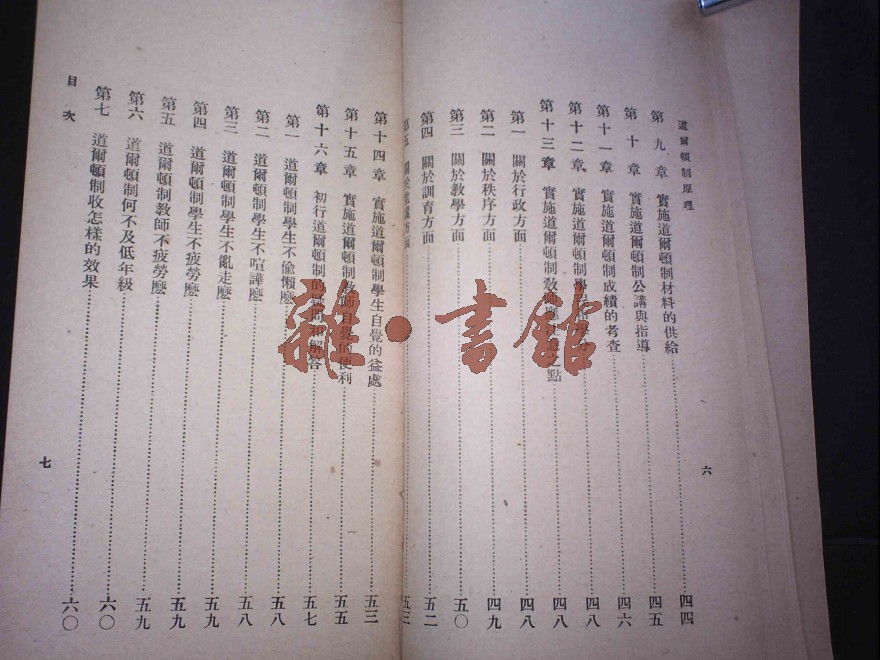 道爾頓制原理
第九章 實施道爾頓制材料的供給 四四
第十章 實施道爾頓制公講與指導 四五
第十一章 實施道爾頓制成績的考查 四六
第十二章 實施道爾頓制學 四八
第十三章 實施道爾頓制教師 點 四八
第一 關於行政方面 四八
第二 關於秩序方面 四九
第三 關於教學方面 五〇
第四 關於訓育方面 五二
第五 關於 方面 五三
六
第十四章 實施道爾頓制學生自覺的益處 五三
第十五章 實施道爾頓制教師自覺的便利 五五
第十六章 初行道爾頓制的疑問和解答 五七
第一 道爾頓制學生不偷懶麽 五八
第二 道爾頓制學生不喧譁麽 五八
第三 道爾頓制學生不亂走麽 五九
第四 道爾頓制學生不疲勞麽 五九
第五 道爾頓制教師不疲勞麽 五九
第六 道爾頓制何不及低年級 六〇
第七 道爾頓制收怎樣的效果 六〇
目次
七
雜·書館